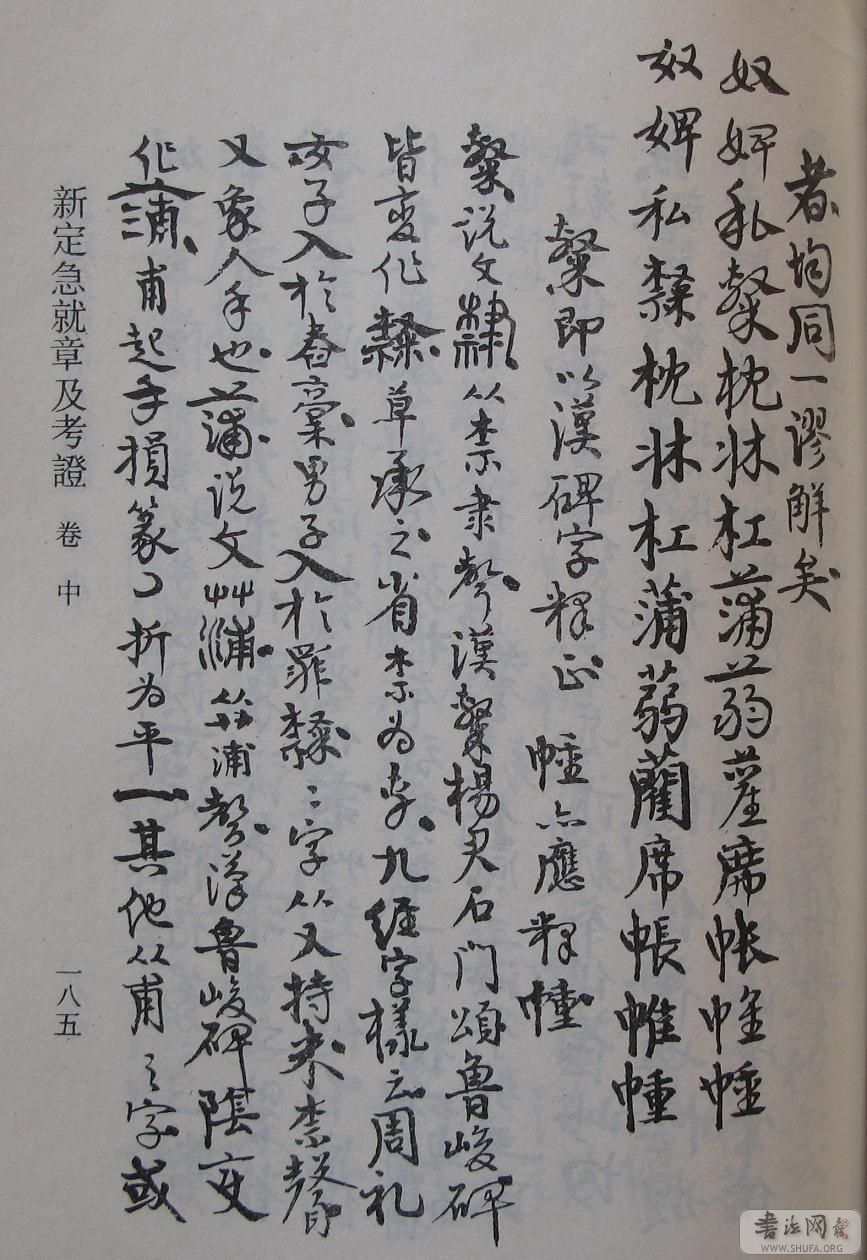 者均同一謬解矣
奴婢私𣜩枕牀杠蒲蒻藺席帳帷幢
奴婢私隸枕牀杠蒲蒻藺席帳帷幢
即以漢碑字釋正 幢亦應釋幢
说文隸从柰隶聲漢楊君石門頌魯峻碑
皆变作隸草承之省柰為九經字樣云周礼
女子入於舂槀男子入於罪隸隸字从又持米柰聲
又象人手也蒲说文艸浦聲漢魯峻碑陰变
作蒲甫起手損篆折為平一其他从甫之字或
新定急就章及考證 卷中
一八五
書法网
WWW.SHUFA.ORG